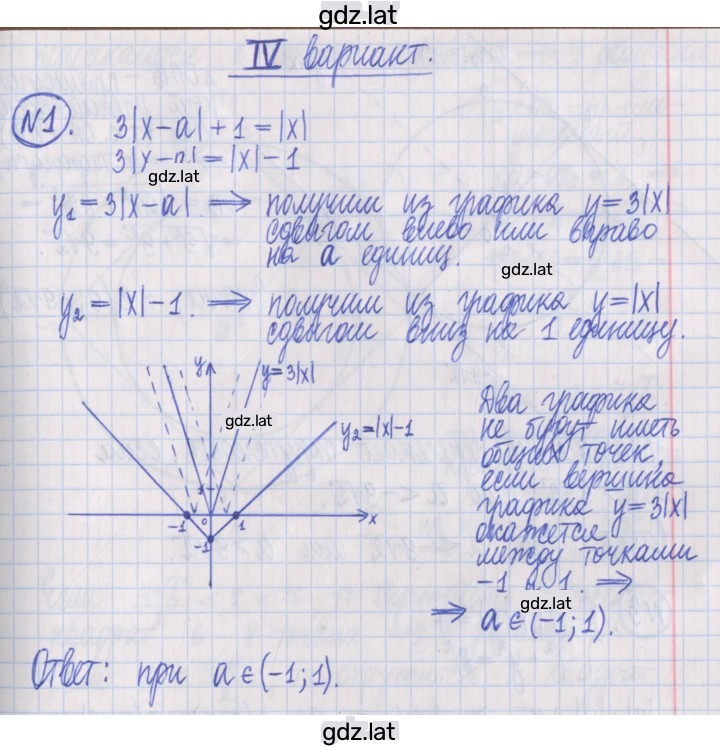 gdz.lat
IV вариант.
№1. 3|x-a|+1=|x|
3|x-a|=|x|-1
gdz.lat
y₁=3|x-a| ⟹ получим из графика y=3|x|
сдвигом влево или вправо
на a единиц.
gdz.lat
y₂=|x|-1. ⟹ получим из графика y=|x|
сдвигом вниз на 1 единицу.
y
y=3|x|
gdz.lat
y₂=|x|-1
1
-1 0 1 x
-1
Два графика
не будут иметь
общих точек,
если вершина
графика y=3|x|
окажется
между точками
-1 и 1. ⟹
gdz.lat
⟹ a∈(-1;1).
Ответ: при a∈(-1;1).
gdz.lat